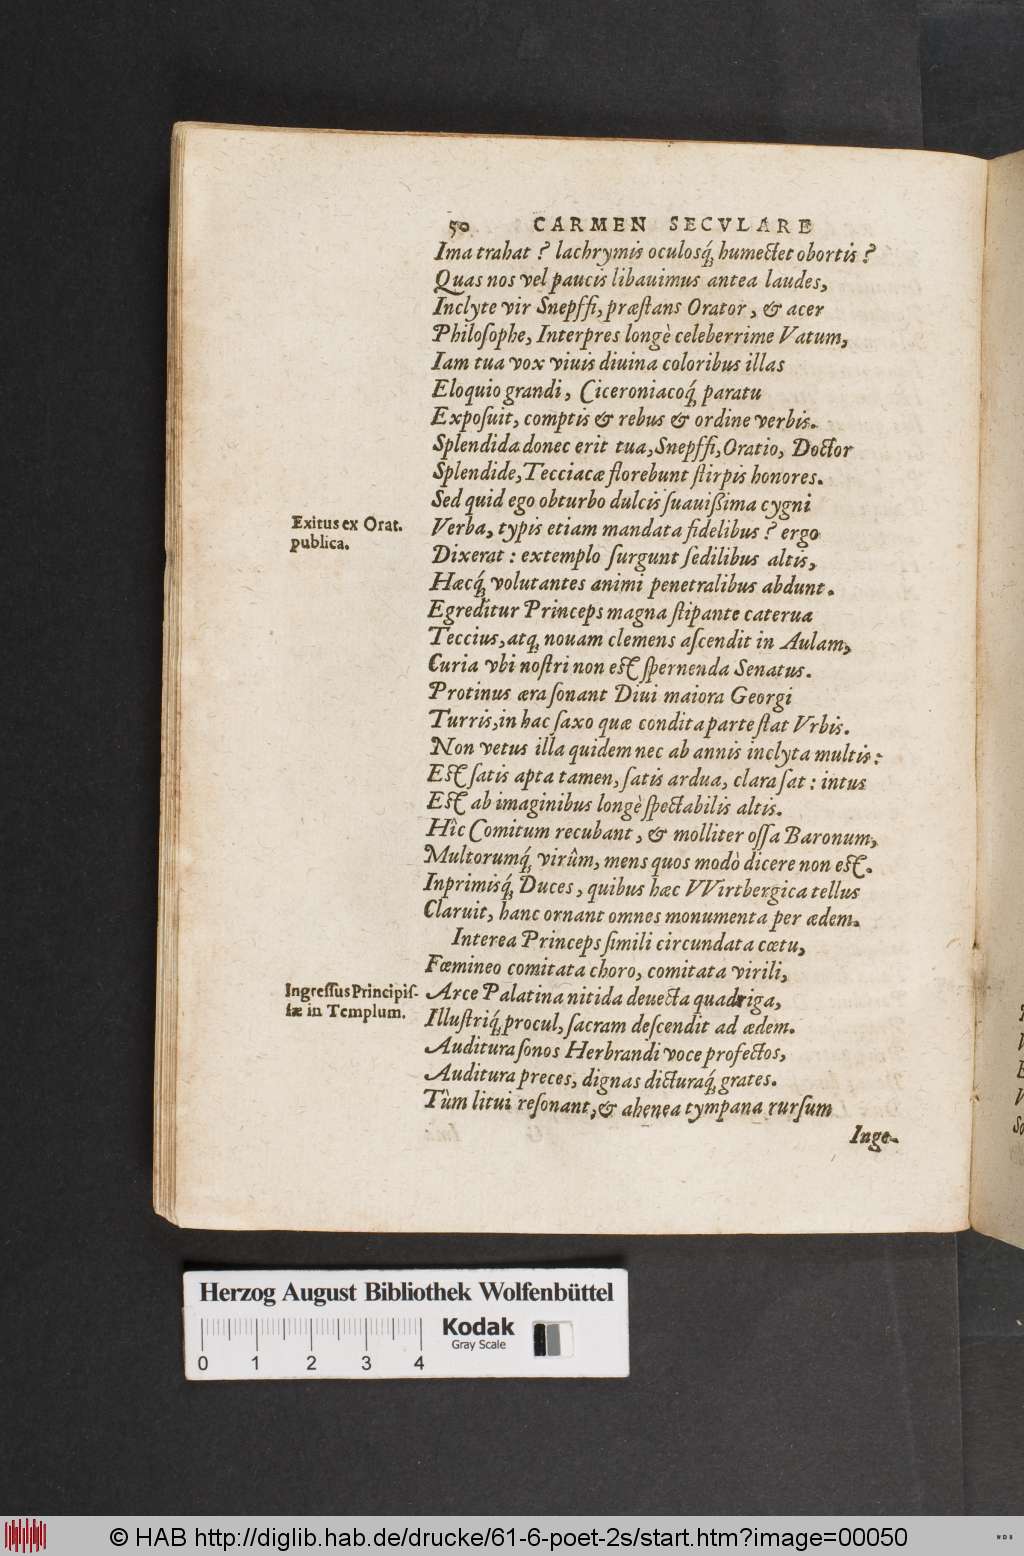 50 CARMEN SECVLARE
Ima trahat? lachrymis oculosq́; humectet obortis?
Quas nos vel paucis libauimus antea laudes,
Inclyte vir Snepffi, præſtans Orator, & acer
Philoſophe, Interpres longè celeberrime Vatum,
Iam tua vox viuis diuina coloribus illas
Eloquio grandi, Ciceroniacoq́; paratu
Expoſuit, comptis & rebus & ordine verbis.
Splendida donec erit tua, Snepffi, Oratio, Doctor
Splendide, Tecciacæ florebunt ſtirpis honores.
Sed quid ego obturbo dulcis ſuauißima cygni
Exitus ex Orat.
publica.
Verba, typis etiam mandata fidelibus? ergo
Dixerat: extemplo ſurgunt ſedilibus altis,
Hæcq́; volutantes animi penetralibus abdunt.
Egreditur Princeps magna ſtipante caterua
Teccius, atq; nouam clemens aſcendit in Aulam,
Curia vbi noſtri non eſt ſpernenda Senatus.
Protinus æra ſonant Diui maiora Georgi
Turris, in hac ſaxo quæ condita parte ſtat Vrbis.
Non vetus illa quidem nec ab annis inclyta multis:
Eſt ſatis apta tamen, ſatis ardua, clara ſat: intus
Eſt ab imaginibus longè ſpectabilis altis.
Hîc Comitum recubant, & molliter oſſa Baronum,
Multorumq́; virûm, mens quos modò dicere non eſt.
Inprimisq́; Duces, quibus hæc VVirtbergica tellus
Claruit, hanc ornant omnes monumenta per ædem.
Interea Princeps ſimili circundata cœtu,
Fœmineo comitata choro, comitata virili,
Ingreſſus Principiſ-
ſæ in Templum.
Arce Palatina nitida deuecta quadriga,
Illuſtriq́; procul, ſacram deſcendit ad ædem.
Auditura ſonos Herbrandi voce profectos,
Auditura preces, dignas dicturaq́; grates.
Tùm litui reſonant, & ahenea tympana rurſum
Inge-
Herzog August Bibliothek Wolfenbüttel
Kodak
Gray Scale
0 1 2 3 4
© HAB http://diglib.hab.de/drucke/61-6-poet-2s/start.htm?image=00050